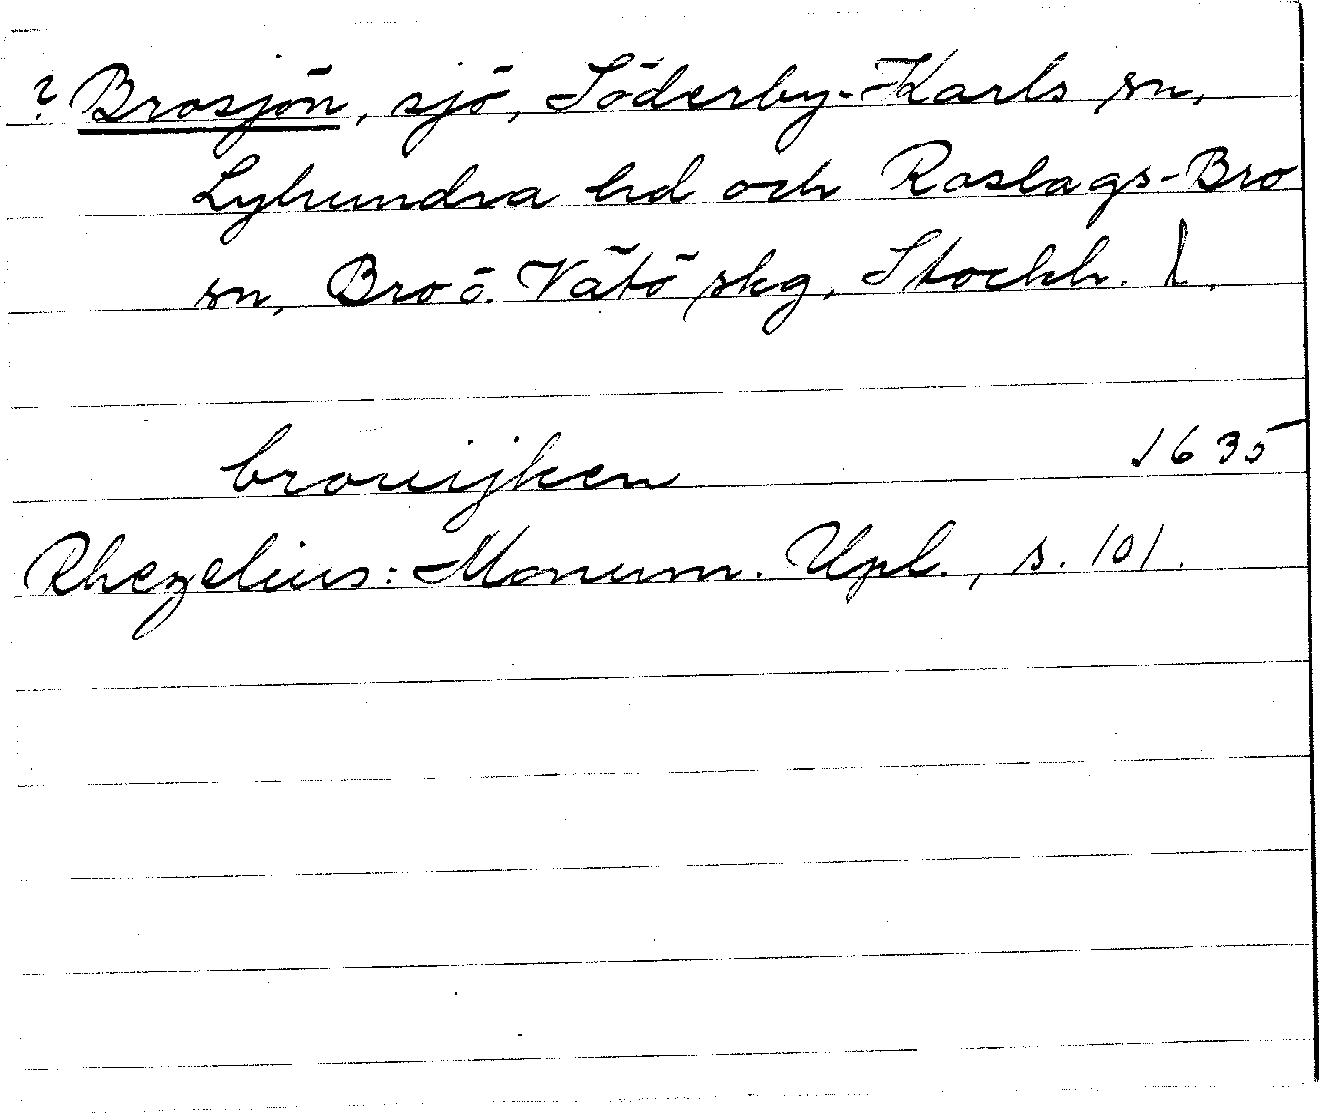 ? Brosjön, sjö, Söderby-Karls sn,
Lyhundra hd och Roslags-Bro
sn, Bro o. Vätö skg, Stockh. l.
brouijken 1635
Rhezelius: Monum. Upl., s. 101.